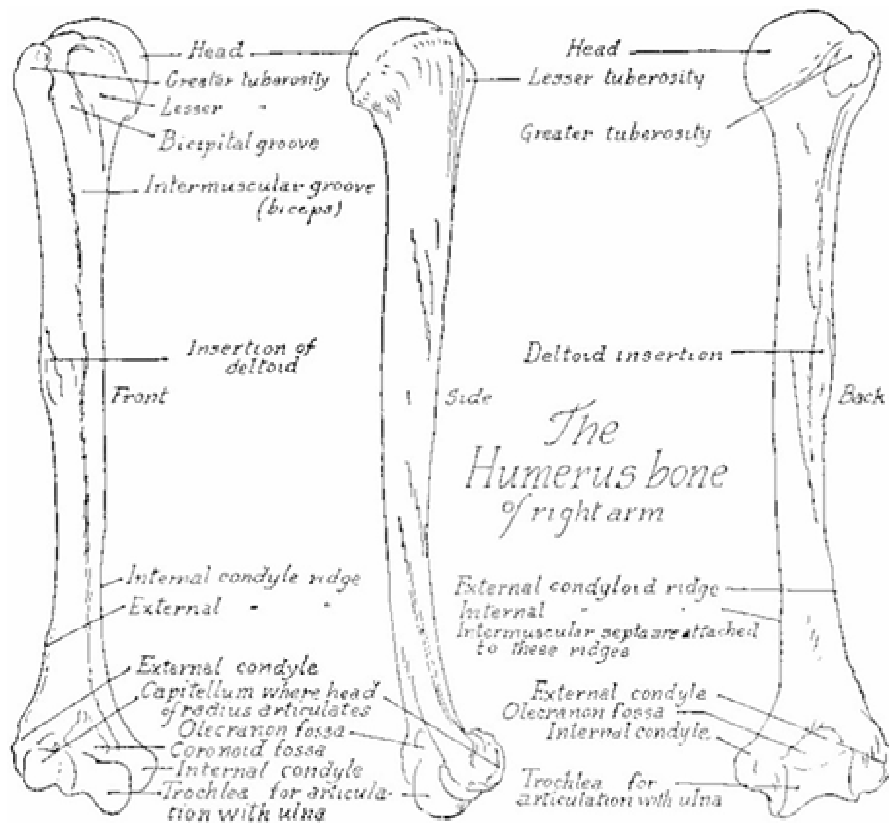 Head
Greater tuberosity
Lesser "
Bicipital groove
Intermuscular groove
(biceps)
Insertion of
deltoid
Front
Internal condyle ridge
External " "
External condyle
Capitellum where head
of radius articulates
Olecranon fossa
Coronoid fossa
Internal condyle
Trochlea for articula-
tion with ulna
Side
The
Humerus bone
of right arm
Head
Lesser tuberosity
Greater tuberosity
Deltoid insertion
Back
External condyloid ridge
Internal " "
Intermuscular septa are attached
to these ridges
External condyle
Olecranon fossa
Internal condyle
Trochlea for
articulation with ulna